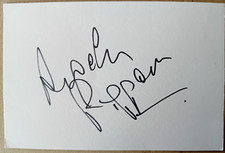 Angela
Rippon